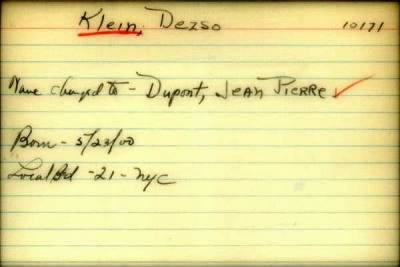 Klein, Dezso 10171
Name changed to - Dupont, Jean Pierre ✓
Born - 5/23/00
Local Bd - 21 - NYC